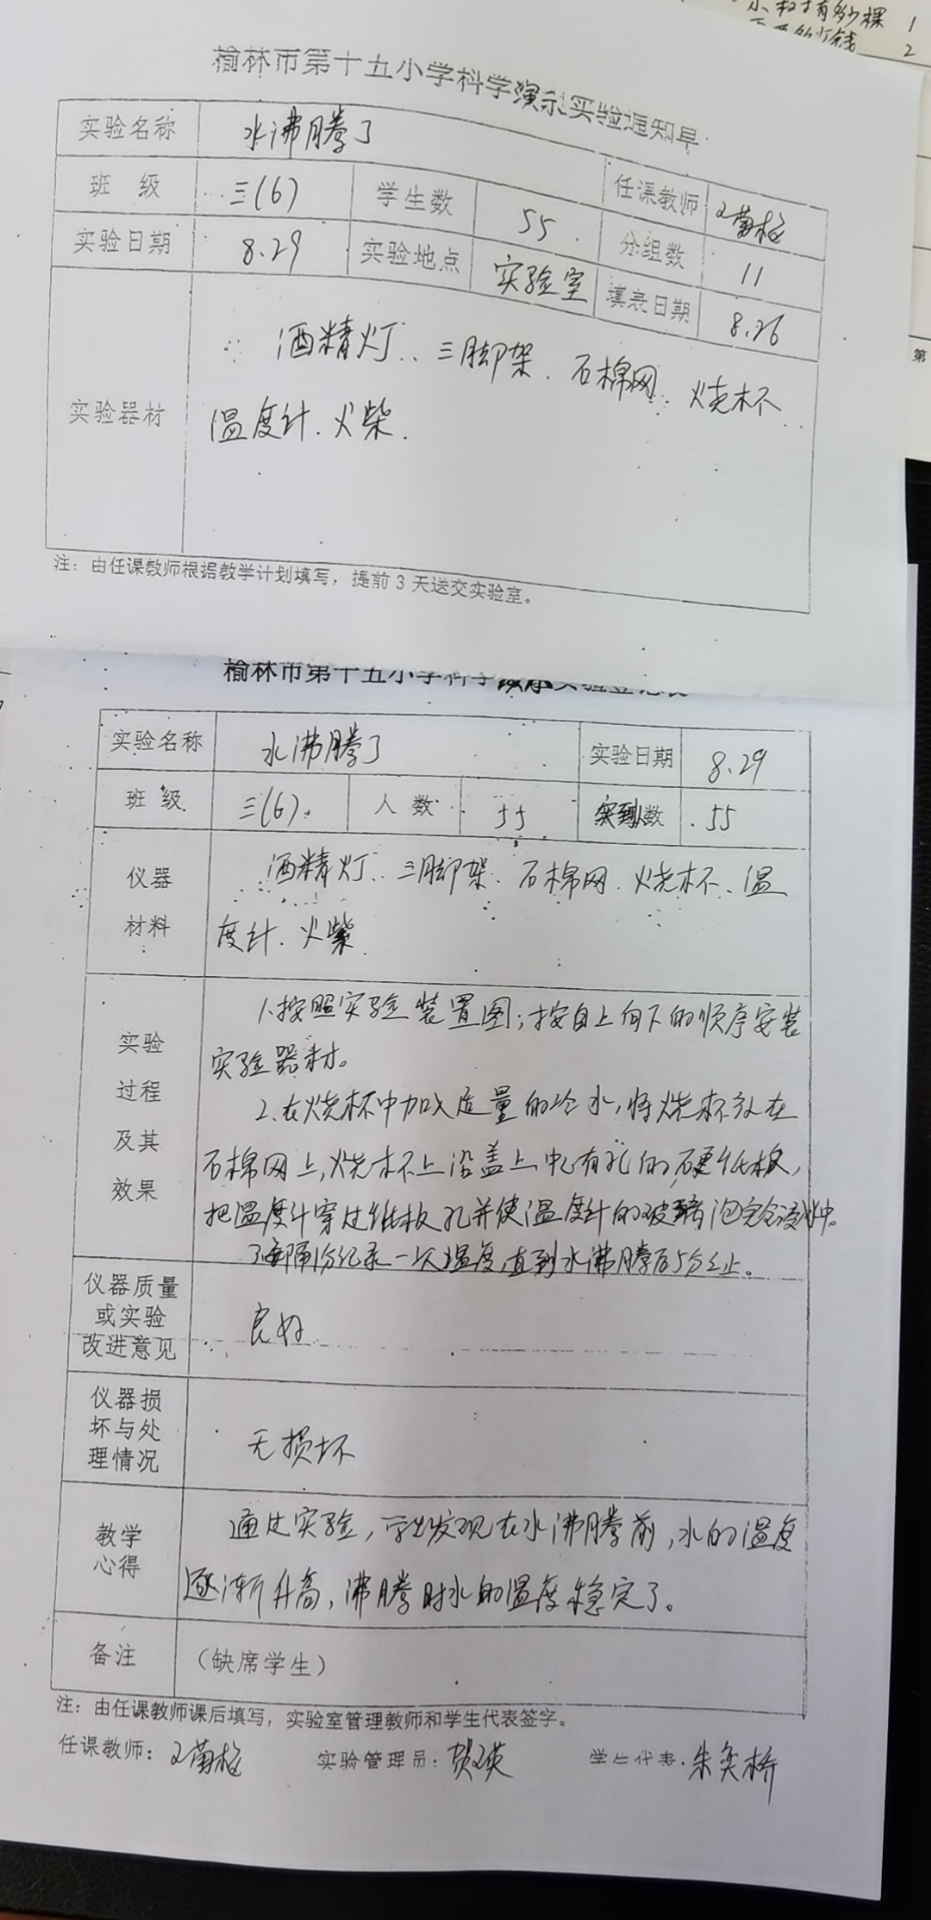 小数
1
2
第
榆林市第十五小学科学演示实验通知单
实验名称 水沸腾了
班 级 三(6) 学生数 55 任课教师
实验日期 8.29 实验地点 实验室 分组数 11
填表日期 8.26
实验器材 酒精灯、三脚架、石棉网、烧杯
温度计、火柴.
注：由任课教师根据教学计划填写，提前 3 天送交实验室。
榆林市第十五小学科学演示实验登记表
实验名称 水沸腾了 实验日期 8.29
班 级 三(6) 人 数 55 实到人数 55
仪器 酒精灯、三脚架、石棉网、烧杯、温
材料 度计、火柴
实验
过程
及其
效果
1.按照实验装置图;按自上向下的顺序安装
实验器材。
2.在烧杯中加入适量的冷水,将烧杯放在
石棉网上,烧杯上沿盖上中心有孔的硬纸板,
把温度计穿过纸板孔并使温度计的玻璃泡完全浸水中。
3.每隔1分记录一次温度,直到水沸腾后5分止。
仪器质量
或实验
改进意见
良好
仪器损
坏与处
理情况
无损坏
教学
心得
通过实验,学生发现在水沸腾前,水的温度
逐渐升高,沸腾时水的温度稳定了。
备注 (缺席学生)
注：由任课教师课后填写，实验室管理教师和学生代表签字。
任课教师: 实验管理员: 学生代表: 朱奕桥